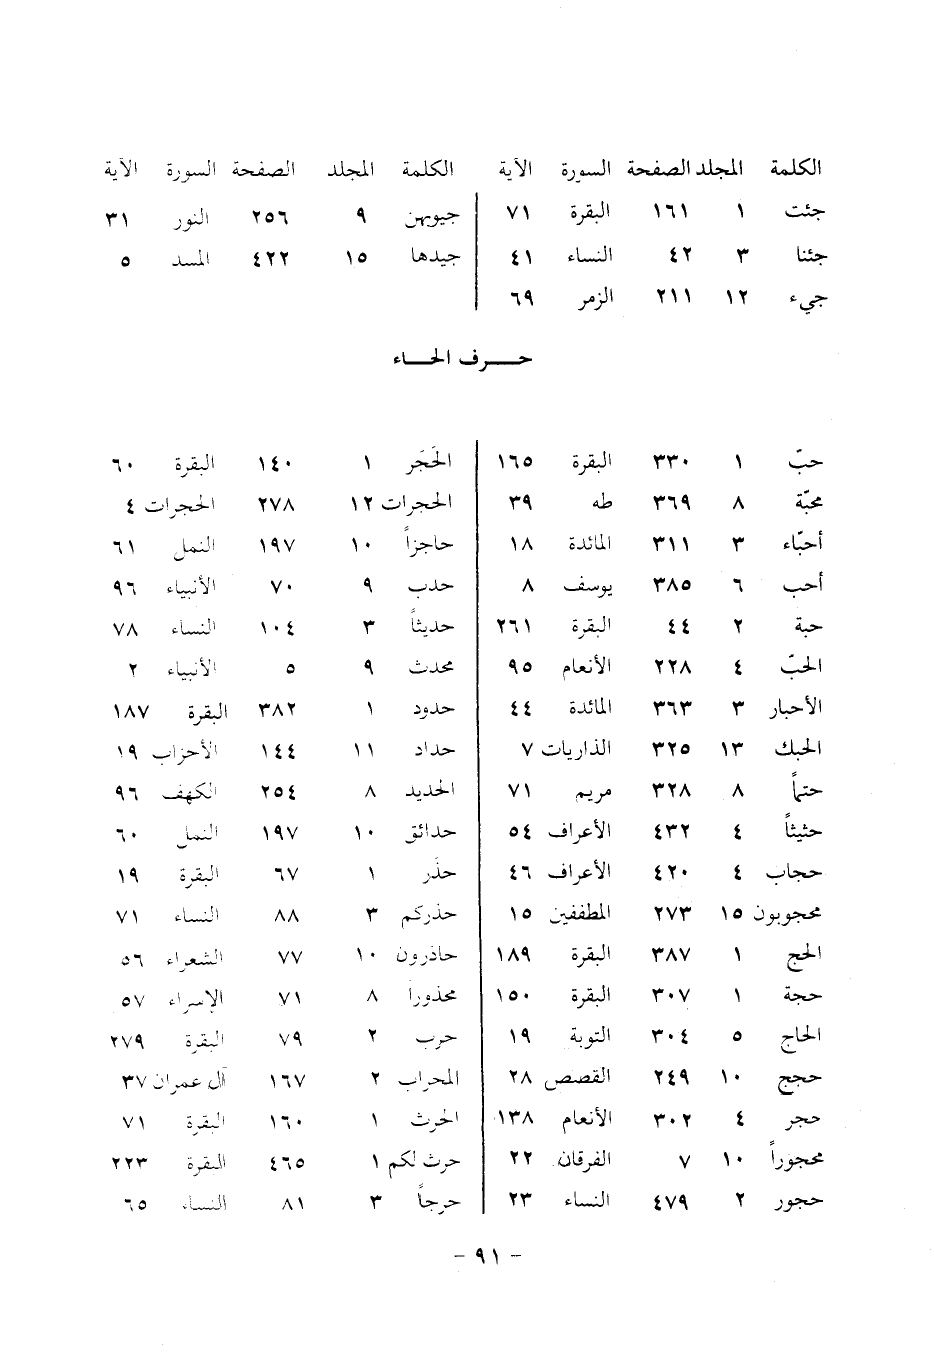 الكلمة المجلد الصفحة السورة الآية
جئت ١ ١٦١ البقرة ٧١
جئنا ٣ ٤٢ النساء ٤١
جيء ١٢ ٢١١ الزمر ٦٩
الكلمة المجلد الصفحة السورة الآية
جيوبهن ٩ ٢٥٦ النور ٣١
جيدها ١٥ ٤٢٢ المسد ٥
حـرف الحـاء
حبّ ١ ٣٣٠ البقرة ١٦٥
محبّة ٨ ٣٦٩ طه ٣٩
أحبّاء ٣ ٣١١ المائدة ١٨
أحب ٦ ٣٨٥ يوسف ٨
حبة ٢ ٤٤ البقرة ٢٦١
الحبّ ٤ ٢٢٨ الأنعام ٩٥
الأحبار ٣ ٣٦٣ المائدة ٤٤
الحبك ١٣ ٣٢٥ الذاريات ٧
حتماً ٨ ٣٢٨ مريم ٧١
حثيثاً ٤ ٤٣٢ الأعراف ٥٤
حجاب ٤ ٤٢٠ الأعراف ٤٦
محجوبون ١٥ ٢٧٣ المطففين ١٥
الحج ١ ٣٨٧ البقرة ١٨٩
حجة ١ ٣٠٧ البقرة ١٥٠
الحاج ٥ ٣٠٤ التوبة ١٩
حجج ١٠ ٢٤٩ القصص ٢٨
حجر ٤ ٣٠٢ الأنعام ١٣٨
محجوراً ١٠ ٧ الفرقان ٢٢
حجور ٢ ٤٧٩ النساء ٢٣
الحَجَر ١ ١٤٠ البقرة ٦٠
الحجرات ١٢ ٢٧٨ الحجرات ٤
حاجزاً ١٠ ١٩٧ النمل ٦١
حدب ٩ ٧٠ الأنبياء ٩٦
حديثاً ٣ ١٠٤ النساء ٧٨
محدث ٩ ٥ الأنبياء ٢
حدود ١ ٣٨٢ البقرة ١٨٧
حداد ١١ ١٤٤ الأحزاب ١٩
الحديد ٨ ٢٥٤ الكهف ٩٦
حدائق ١٠ ١٩٧ النمل ٦٠
حذَر ١ ٦٧ البقرة ١٩
حذركم ٣ ٨٨ النساء ٧١
حاذرون ١٠ ٧٧ الشعراء ٥٦
محذوراً ٨ ٧١ الإسراء ٥٧
حرب ٢ ٧٩ البقرة ٢٧٩
المحراب ٢ ١٦٧ آل عمران ٣٧
الحرث ١ ١٦٠ البقرة ٧١
حرث لكم ١ ٤٦٥ البقرة ٢٢٣
حرجاً ٣ ٨١ النساء ٦٥
- ٩١ -